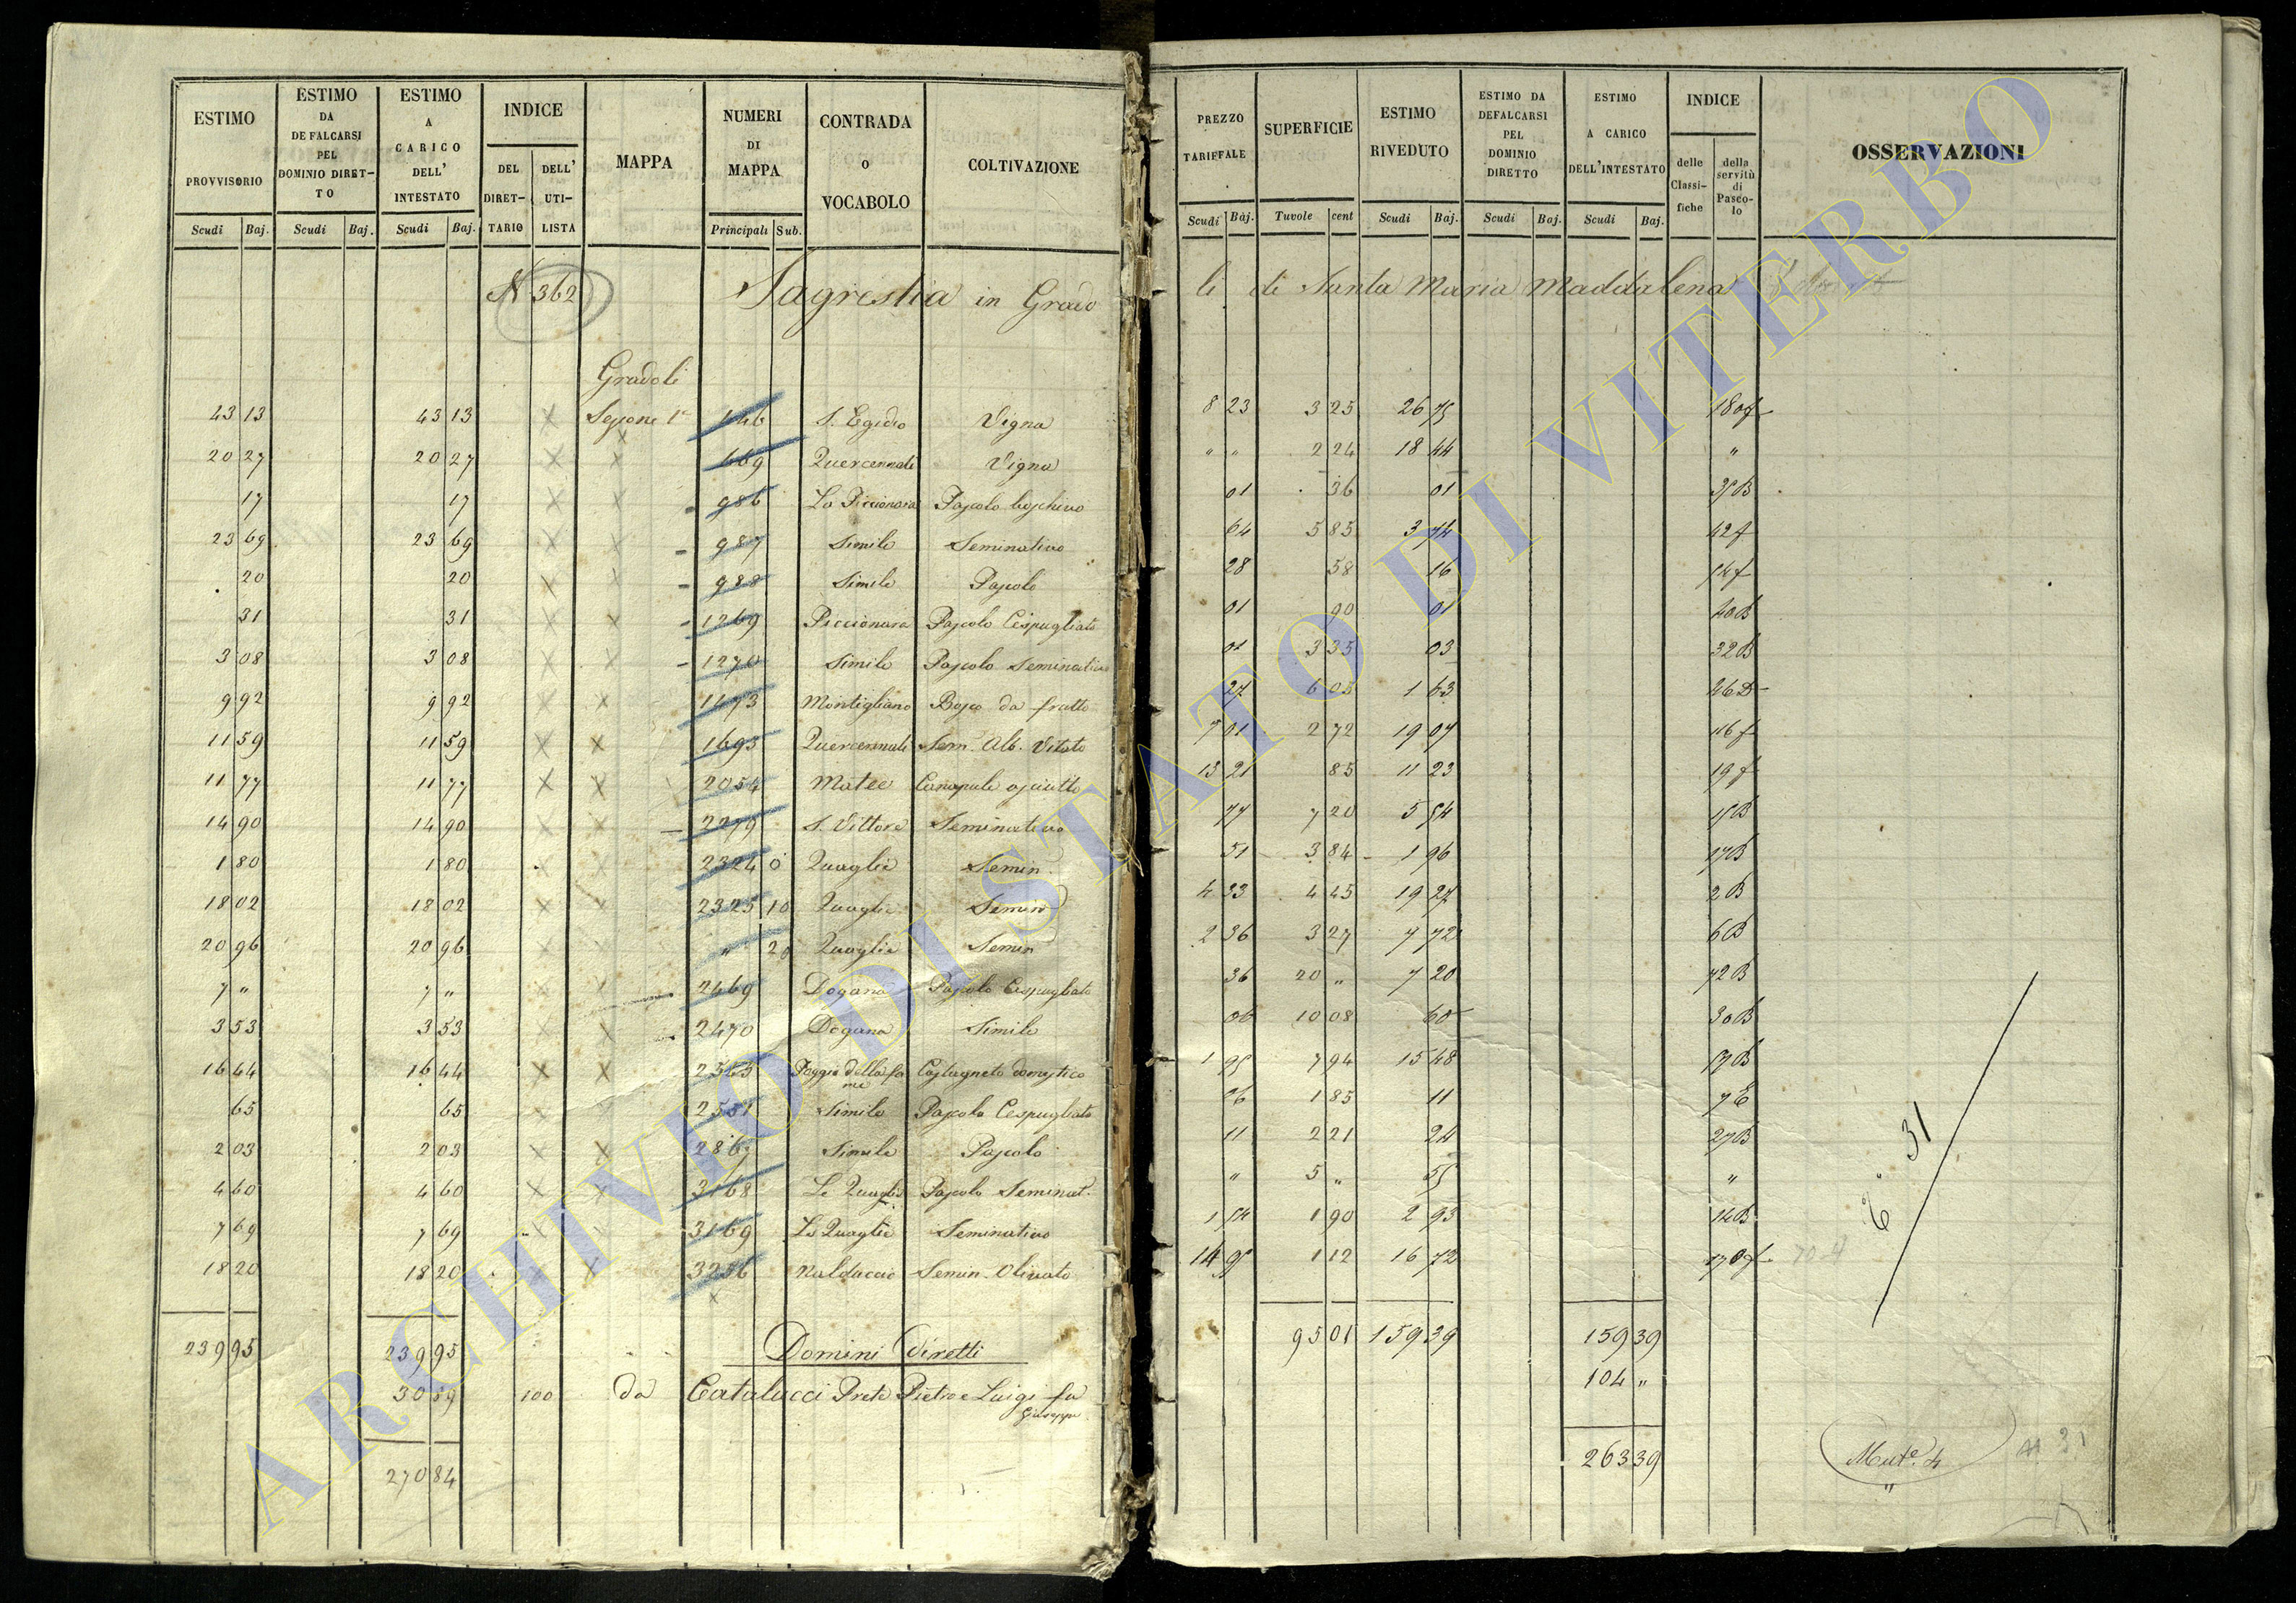 ESTIMO PROVVISORIO
ESTIMO DA DEFALCARSI PEL DOMINIO DIRET-TO
ESTIMO A CARICO DELL' INTESTATO
INDICE
DEL DIRET-TARIO
DELL' UTI-LISTA
MAPPA
NUMERI DI MAPPA
CONTRADA o VOCABOLO
COLTIVAZIONE
Scudi Baj. Scudi Baj. Scudi Baj. Principali Sub.
PREZZO TARIFFALE
SUPERFICIE
ESTIMO RIVEDUTO
ESTIMO DA DEFALCARSI PEL DOMINIO DIRETTO
ESTIMO A CARICO DELL'INTESTATO
INDICE
delle Classi-fiche
della servitù di Pasco-lo
OSSERVAZIONI
Scudi Baj. Tavole cent Scudi Baj. Scudi Baj. Scudi Baj.
N 362 Sagrestia in Grado li di Santa Maria Maddalena
Gradoli
43 13 43 13 Sezione 1a 146 S. Egidio Vigna 8 23 3 25 26 75 180f
20 27 20 27 669 Quercennale Vigna " " 2 24 18 44 "
17 17 986 La Piccionara Pascolo boschivo 01 36 01 35B
23 69 23 69 987 Simile Seminativo 64 5 85 3 74 42f
20 20 988 Simile Pascolo 28 58 16 54f
31 31 1269 Piccionara Pascolo Cespugliato 01 90 01 20B
3 08 3 08 1270 Simile Pascolo Seminativo 01 3 35 03 32B
9 92 9 92 1173 Montigliano Bosco da frutto 27 6 05 1 63 26D
11 59 11 59 1693 Quercennale Sem. Alb. Vitato 7 01 2 72 19 07 116f
11 77 11 77 2054 Matee Canapule asciutto 13 21 85 11 23 19f
14 90 14 90 2279 S. Vittore Seminativo 77 7 20 5 54 15B
1 80 1 80 2324 Quaglie Semin. 51 3 84 1 96 17B
18 02 18 02 2325 10 Quaglie Semin 4 33 4 45 19 27 2B
20 96 20 96 " 20 Quaglie Semin 2 36 3 27 7 72 6B
7 " 7 " 2469 Dogana Pascolo Cespugliato 36 20 " 7 20 72B
3 53 3 53 2470 Dogana Simile 06 10 08 60 30B
16 44 16 44 2363 Poggio della fame Castagneto domestico 1 95 7 94 15 48 13B
65 65 2551 Simile Pascolo Cespugliato 06 1 85 11 7E
2 03 2 03 2867 Simile Pascolo 11 2 21 24 27B
4 60 4 60 3168 Le Quaglie Pascolo Seminat. " 5 " 55 "
7 69 7 69 3169 Le Quaglie Seminativo 1 54 1 90 2 93 14B
18 20 18 20 3256 Naldaccio Semin. Olivato 14 95 1 12 16 72 170f
239 95 239 95 95 01 159 39 159 39
Domini Diretti
30 89 100 Da Catalucci Prete Pietro e Luigi fu Giuseppe 104 "
270 84 263 39
6 " 31
Mut.e 4
ARCHIVIO DI STATO DI VITERBO